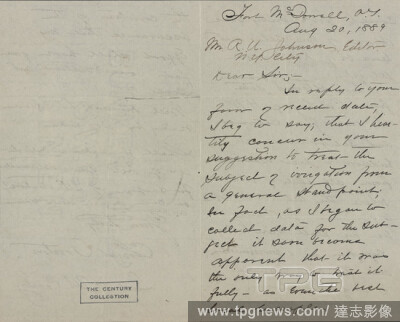 Fort McDowell, A.T.
Aug 20, 1889
Mr. R. U. Johnson, Editor
N.Y. City
Dear Sir,
In reply to your
favor of recent date,
I beg to say, that I hear-
tily concur in your
suggestion to treat the
subject of irrigation from
a general standpoint;
In fact, as I began to
collect data for the sub-
ject it soon became
apparent that it was
the only way to treat it
fully - as
THE CENTURY
COLLECTION
TPG
www.tpgnews.com / 達志影像